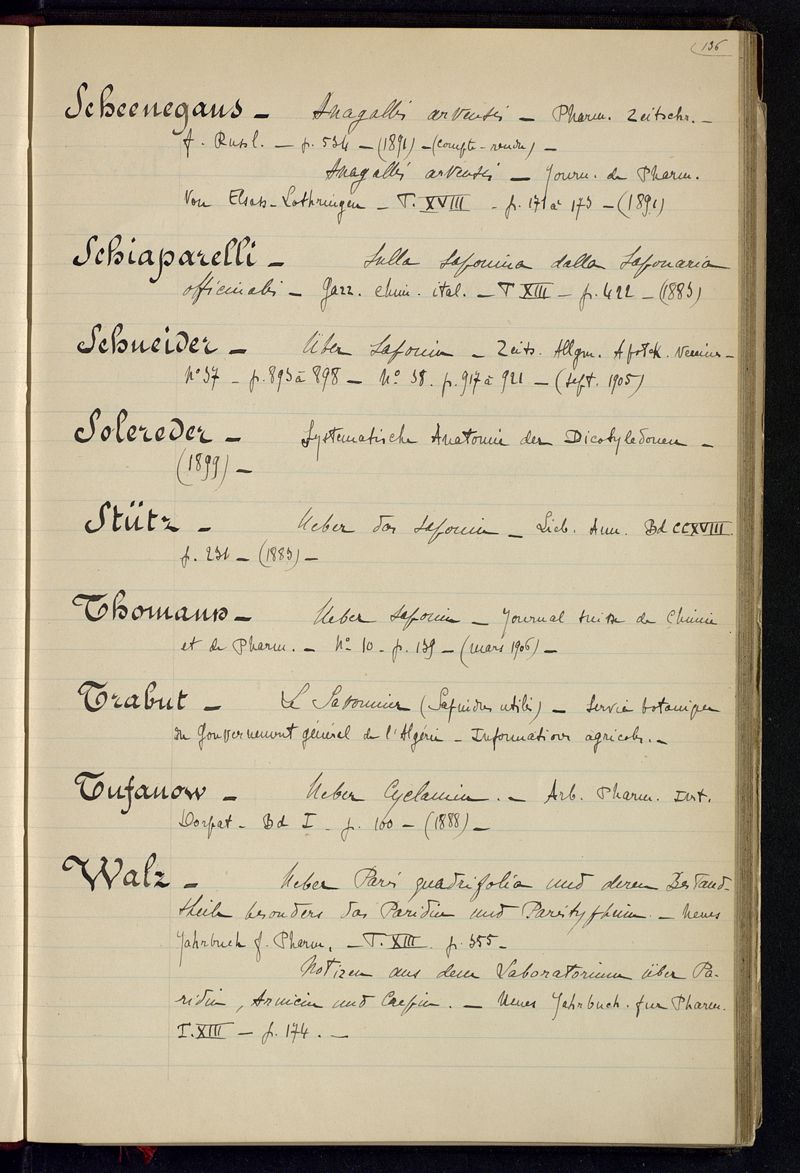 136
Scheenegans — Anagallis arvensis — Pharm. Zeitschr. —
f. Russl. — p. 534 — (1891) — (compte-rendu) —
Anagallis arvensis — Journ. de Pharm.
Von Elsass-Lothringen — T. XVIII — p. 171 à 173 — (1891)
Schiaparelli — Sulla saponina dalla saponaria
officinalis — Gazz. chim. ital. — T XIII — p. 422 — (1883)
Schneider — Über Saponin — Zeits. Allgm. Apotek. Vereins —
N° 37 — p. 893 à 898 — N° 38. p. 917 à 921 — (sept. 1905)
Solereder — Systematische Anatomie der Dicotyledonen —
(1899) —
Stütz — Ueber das saponin — Lieb. Ann. Bd CCXVIII.
p. 231 — (1883) —
Thomann — Ueber saponin — Journal suisse de Chimie
et de Pharm. — N° 10 — p. 139 — (mars 1906) —
Trabut — Le Savonnier (Sapindus utilis) — Service botanique
du Gouvernement général de l'Algérie — Informations agricoles. —
Tufanow — Ueber Cyclamin. — Arb. Pharm. Inst.
Dorpat — Bd I — p. 100 — (1888) —
Walz — Ueber Paris quadrifolia und deren Bestand-
theile besonders das Paridin und Paristyphnin. — Neues
Jahrbuch f. Pharm. — T. XIII. p. 355 —
Notizen aus dem Laboratorium über Pa-
ridin, Arnicin und — Neues Jahrbuch. fur Pharm.
T. XIII — p. 174. —